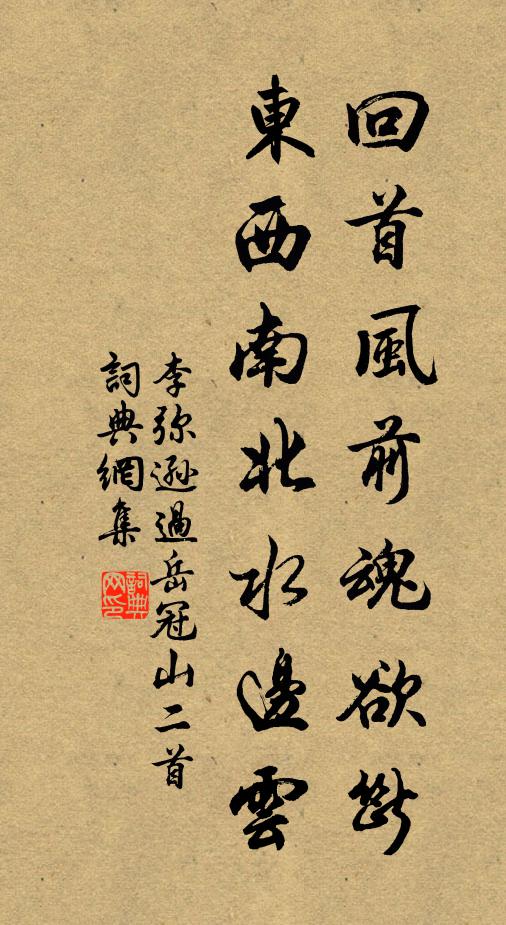 回首風前魂欲斷
東西南北水邊雲
李弥遜過岳冠山二首
詞典網集
詞典網印